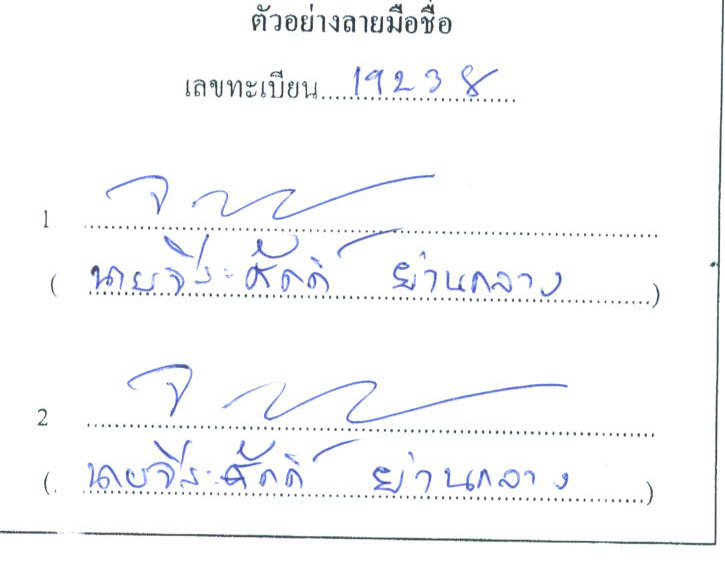 ตัวอย่างลายมือชื่อ
เลขทะเบียน....19238....
1 ....
( นายจีระศักดิ์ ย่านกลาง )
2 ....
( นายจีระศักดิ์ ย่านกลาง )